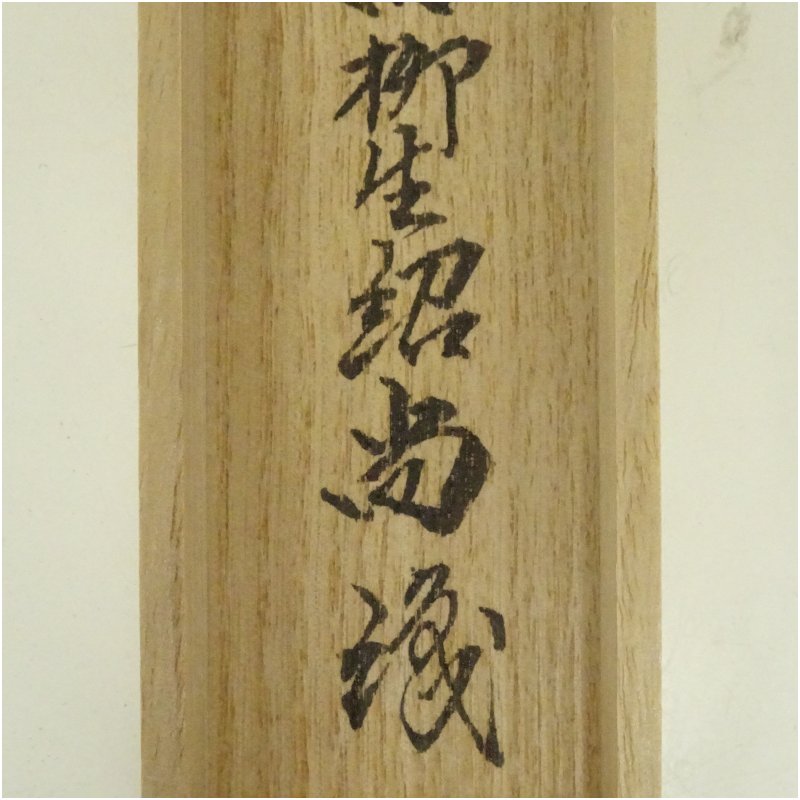 柳生紹尚識